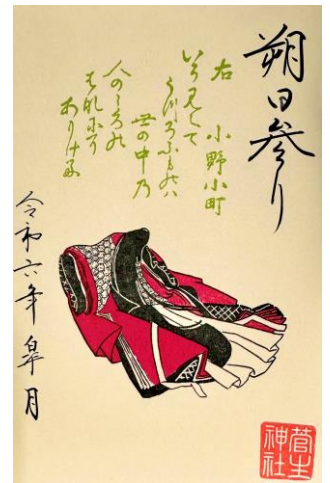 朔日参り
右 小野小町
いろみえて
うつろふものハ
世の中乃
人のこゝろの
ありける
令和六年皐月
菅生
神社